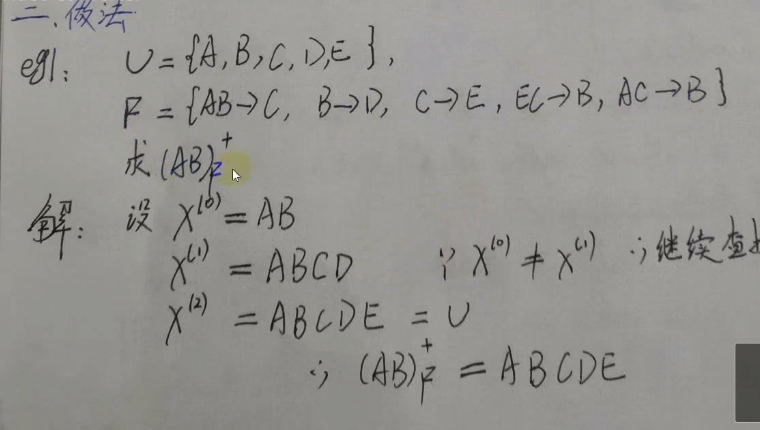 二、做法
eg1: U={A,B,C,D,E},
F={AB→C, B→D, C→E, EC→B, AC→B}
求(AB)F⁺
解: 设 X⁽⁰⁾=AB
X⁽¹⁾=ABCD ∵X⁽⁰⁾≠X⁽¹⁾ ∴继续查
X⁽²⁾=ABCDE=U
∴(AB)F⁺=ABCDE